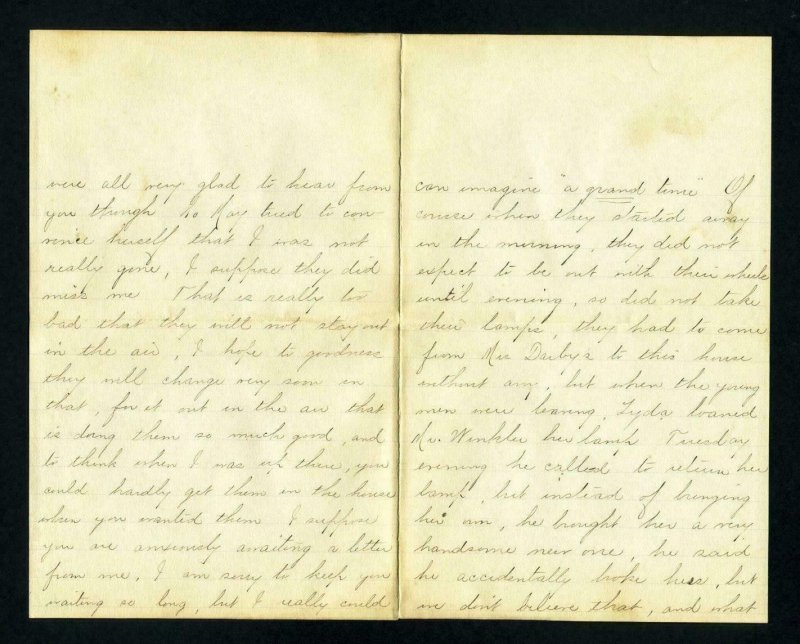 were all very glad to hear from
you though So May tried to con-
vince herself that I was not
really gone, I suppose they did
miss me That is really too
bad that they will not stay out
in the air, I hope to goodness
they will change very soon in
that, for it out in the air that
is doing them so much good, and
to think when I was up there, you
could hardly get them in the house
when you wanted them I suppose
you are anxiously awaiting a letter
from me, I am sorry to keep you
waiting so long, but I really could
can imagine "a grand time" Of
course when they started away
in the morning, they did not
expect to be out with their wheels
until evening, so did not take
their lamps, they had to come
from Mrs Darby's to this house
without any, but when the young
men were leaving, Lyda loaned
Mr. Winkler her lamp Tuesday
evening he called to return her
lamp, but instead of bringing
her own, he brought her a very
handsome new one, he said
he accidentally broke hers, but
we don't believe that, and what